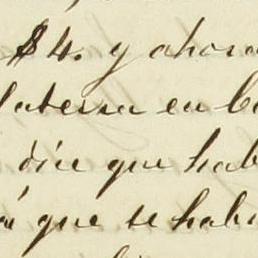 $4. y ahora
laterra en b
dice que hab
que se habi